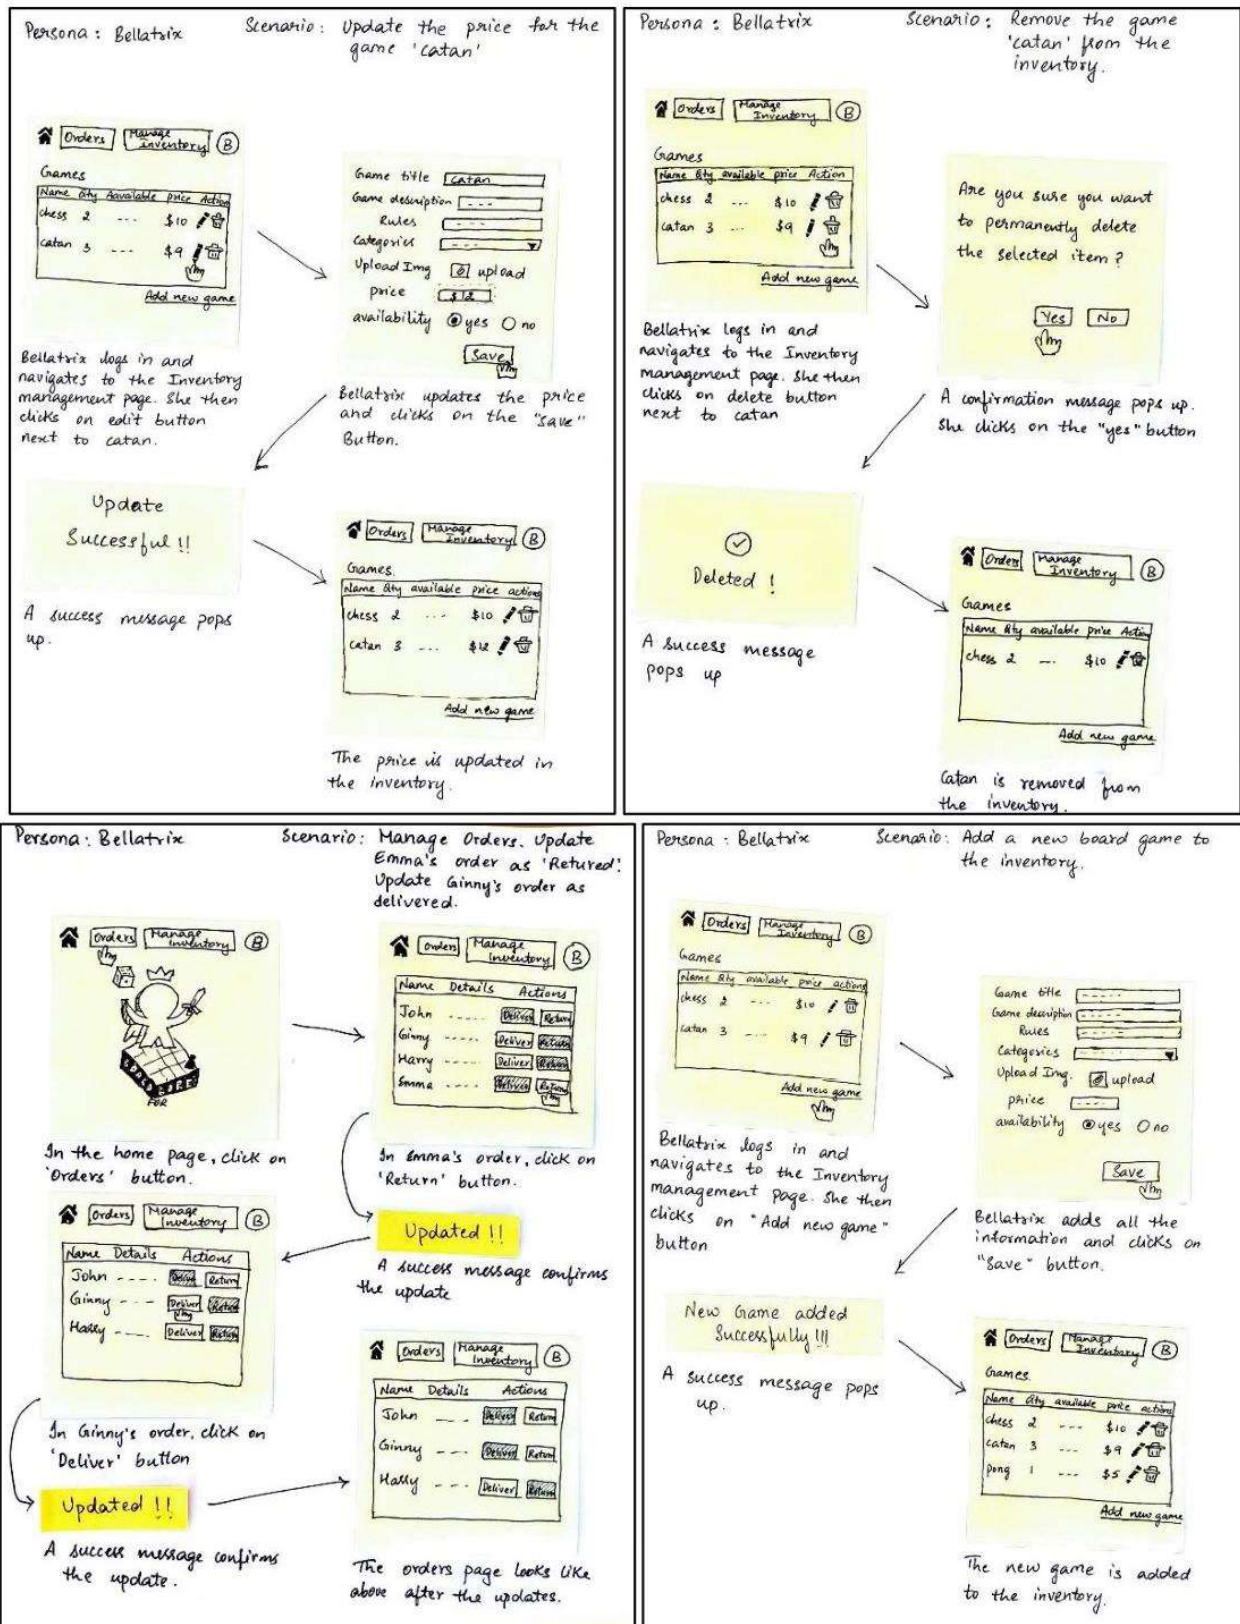 Persona : Bellatrix
Scenario : Update the price for the
game 'catan'
Orders
Manage
Inventory
B
Games
Name Qty Aavailable price Action
chess 2 --- $10
catan 3 --- $9
Add new game
Bellatrix logs in and
navigates to the Inventory
management page. She then
clicks on edit button
next to catan.
Game title catan
Game description ---
Rules ---
Categories ---
Upload Img upload
price $12
availability yes no
Save
Bellatrix updates the price
and clicks on the "save"
Button.
Update
Successful !!
A success message pops
up.
Orders
Manage
Inventory
B
Games.
Name Qty available price actions
chess 2 --- $10
catan 3 --- $12
Add new game
The price is updated in
the inventory.
Persona : Bellatrix
Scenario : Remove the game
'catan' from the
inventory.
Orders
Manage
Inventory
B
Games
Name Qty available price Action
chess 2 --- $10
catan 3 --- $9
Add new game
Bellatrix logs in and
navigates to the Inventory
management page. She then
clicks on delete button
next to catan
Are you sure you want
to permanently delete
the selected item ?
Yes No
A confirmation message pops up.
She clicks on the "yes" button
Deleted !
A success message
pops up
Orders
Manage
Inventory
B
Games
Name Qty available price Action
chess 2 --- $10
Add new game
Catan is removed from
the inventory.
Persona : Bellatrix
Scenario : Manage Orders. Update
Emma's order as 'Retured'.
Update Ginny's order as
delivered.
Orders
Manage
Inventory
B
FOR
In the home page, click on
'Orders' button.
Orders
Manage
Inventory
B
Name Details Actions
John ----- Deliver Return
Ginny ----- Deliver Return
Harry ----- Deliver Return
Emma ---- Deliver Return
In Emma's order, click on
'Return' button.
Updated !!
A success message confirms
the update
Orders
Manage
Inventory
B
Name Details Actions
John ---- Deliver Return
Ginny --- Deliver Return
Harry ---- Deliver Return
In Ginny's order, click on
'Deliver' button
Updated !!
A success message confirms
the update.
Orders
Manage
Inventory
B
Name Details Actions
John --- Deliver Return
Ginny --- Deliver Return
Harry --- Deliver Return
The orders page looks like
above after the updates.
Persona : Bellatrix
Scenario : Add a new board game to
the inventory.
Orders
Manage
Inventory
B
Games
Name Qty available price actions
chess 2 --- $10
catan 3 --- $9
Add new game
Bellatrix logs in and
navigates to the Inventory
management page. She then
clicks on "Add new game"
button
Game title -----
Game description -----
Rules -----
Categories -----
Upload Img. upload
price ----
availability yes no
Save
Bellatrix adds all the
information and clicks on
"Save" button.
New Game added
Successfully !!!
A success message pops
up.
Orders
Manage
Inventory
B
Games
Name Qty available price actions
chess 2 --- $10
catan 3 --- $9
pong 1 --- $5
Add new game
The new game is added
to the inventory.